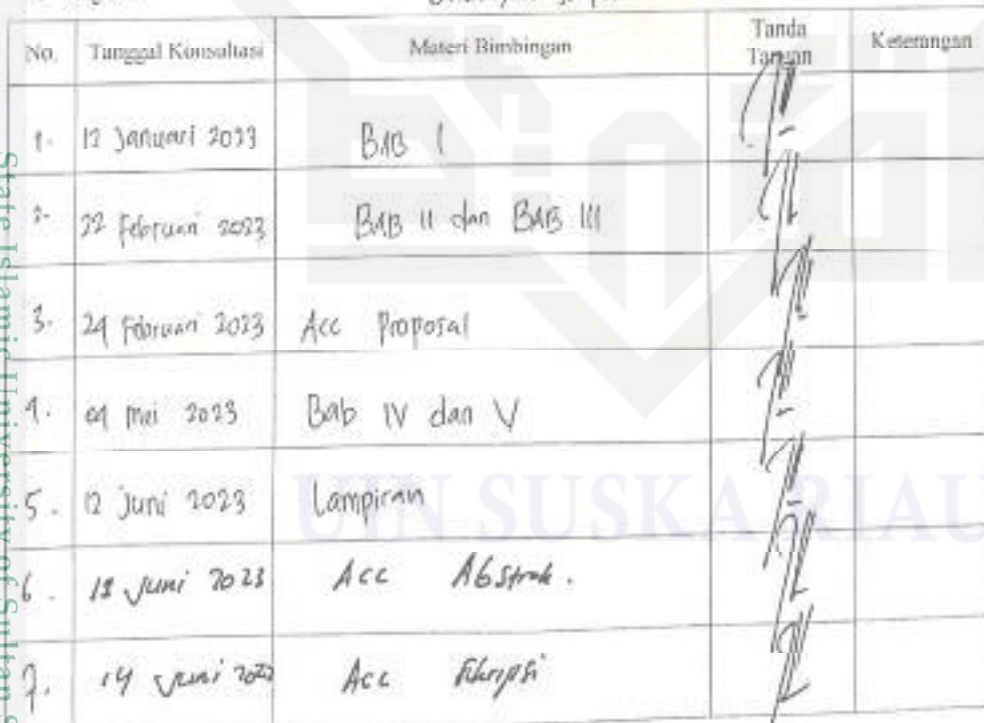 No. Tanggal Konsultasi Materi Bimbingan Tanda Tangan Keterangan
1. 12 Januari 2023 BAB I
2. 22 Februari 2023 BAB II dan BAB III
3. 24 Februari 2023 Acc Proposal
4. 04 Mei 2023 Bab IV dan V
5. 12 Juni 2023 Lampiran
6. Juni 2023 Acc Abstrak.
7. 14 Juni Acc Skripsi
UIN SUSKA RIAU
State Islamic University of Sultan S